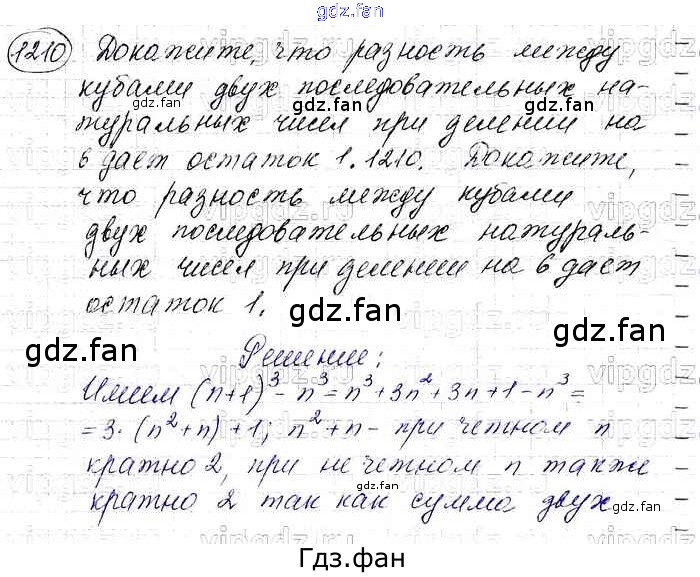 gdz.fan
1210 Докажите, что разность между
кубами двух последовательных на-
gdz.fan gdz.fan
туральных чисел при делении на
6 дает остаток 1. 1210. Докажите,
что разность между кубами
двух последовательных натураль-
ных чисел при делении на 6 дает
остаток 1.
gdz.fan
gdz.fan gdz.fan
Решение:
Имеем (n+1)³ - n³ = n³ + 3n² + 3n + 1 - n³ =
= 3 · (n² + n) + 1; n² + n - при четном n
кратно 2, при нечетном n также
кратно 2 так как сумма двух
gdz.fan gdz.fan
Гдз.фан